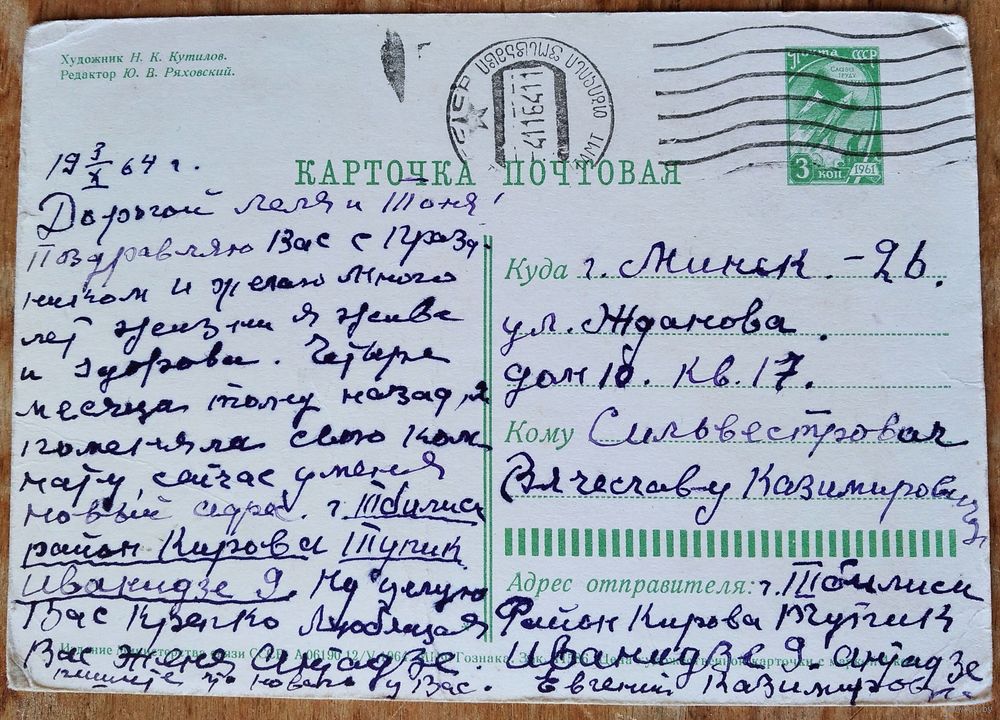 Художник Н. К. Кутилов.
Редактор Ю. В. Ряховский.
41164 11
ПОЧТА СССР
СЛАВА ТРУДУ
3 КОП. 1961
КАРТОЧКА ПОЧТОВАЯ
19 3/X 64 г.
Дорогой Леля и Тоня!
Поздравляю Вас с Празд
ником и желаю много
лет жизни я жива
и здорова. Четыре
месяца тому назад я
поменяла свою ком
нату, сейчас у меня
новый адрес. г Тбилиси
район Кирова Тупик
Иванидзе 9. Ну целую
Вас крепко Любящая
Вас Женя
пишите что нового у Вас.
Куда г. Минск. - 26.
ул. Жданова.
дом 16. кв. 17.
Кому Сильвестрович
Вячеславу Казимирович
Адрес отправителя: г. Тбилиси
Район Кирова тупик
Иванидзе 9
Евгении Казимировн
Издание Министерства связи СССР. А 06190